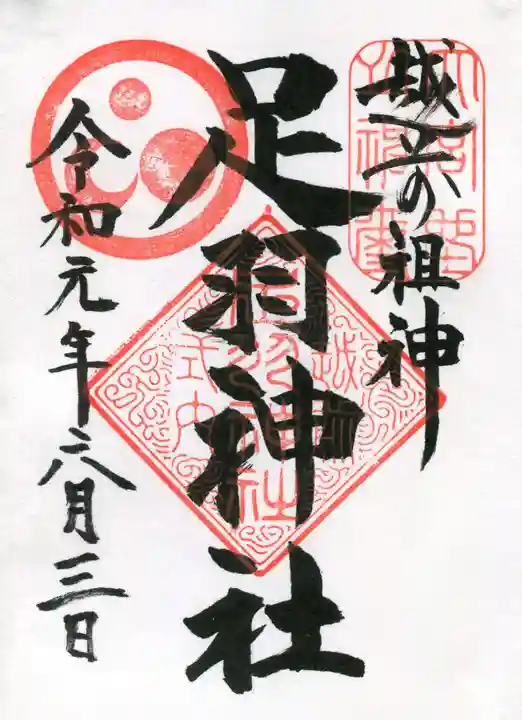 越乃祖神
足羽神社
令和元年六月三日
越前
足羽神社
式内